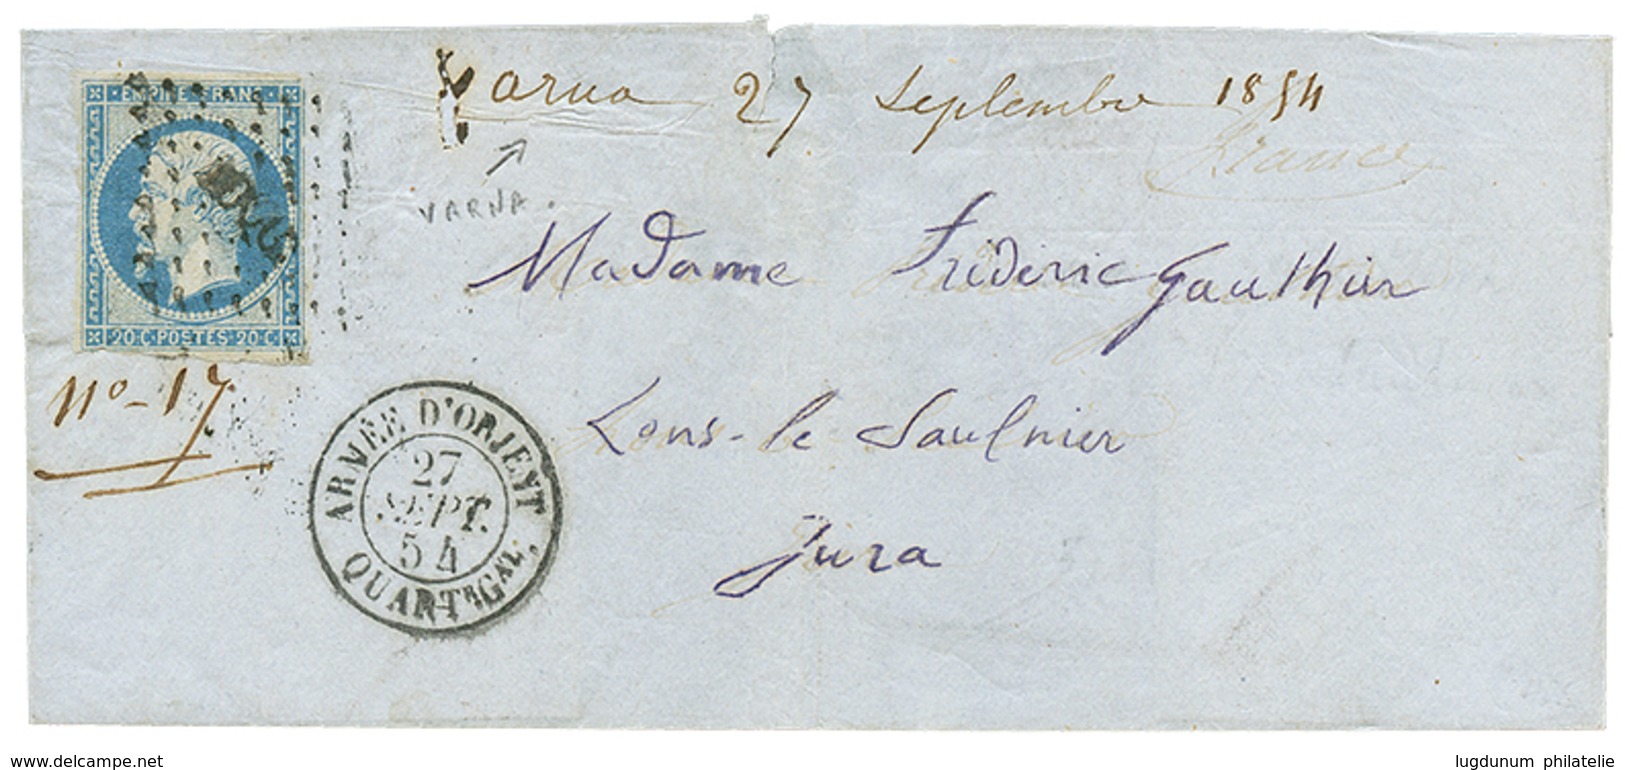 Varna 27 Septembre 1854
France
VARNA.
EMPIRE FRANC
20·C·POSTES·20·C
N° - 17
Madame Fréderic Gauthier
Lons-le Saulnier
Jura
ARMÉE D'ORIENT
27
SEPT.
54
QUARTR GAL.
www.delcampe.net
lugdunum philatelie